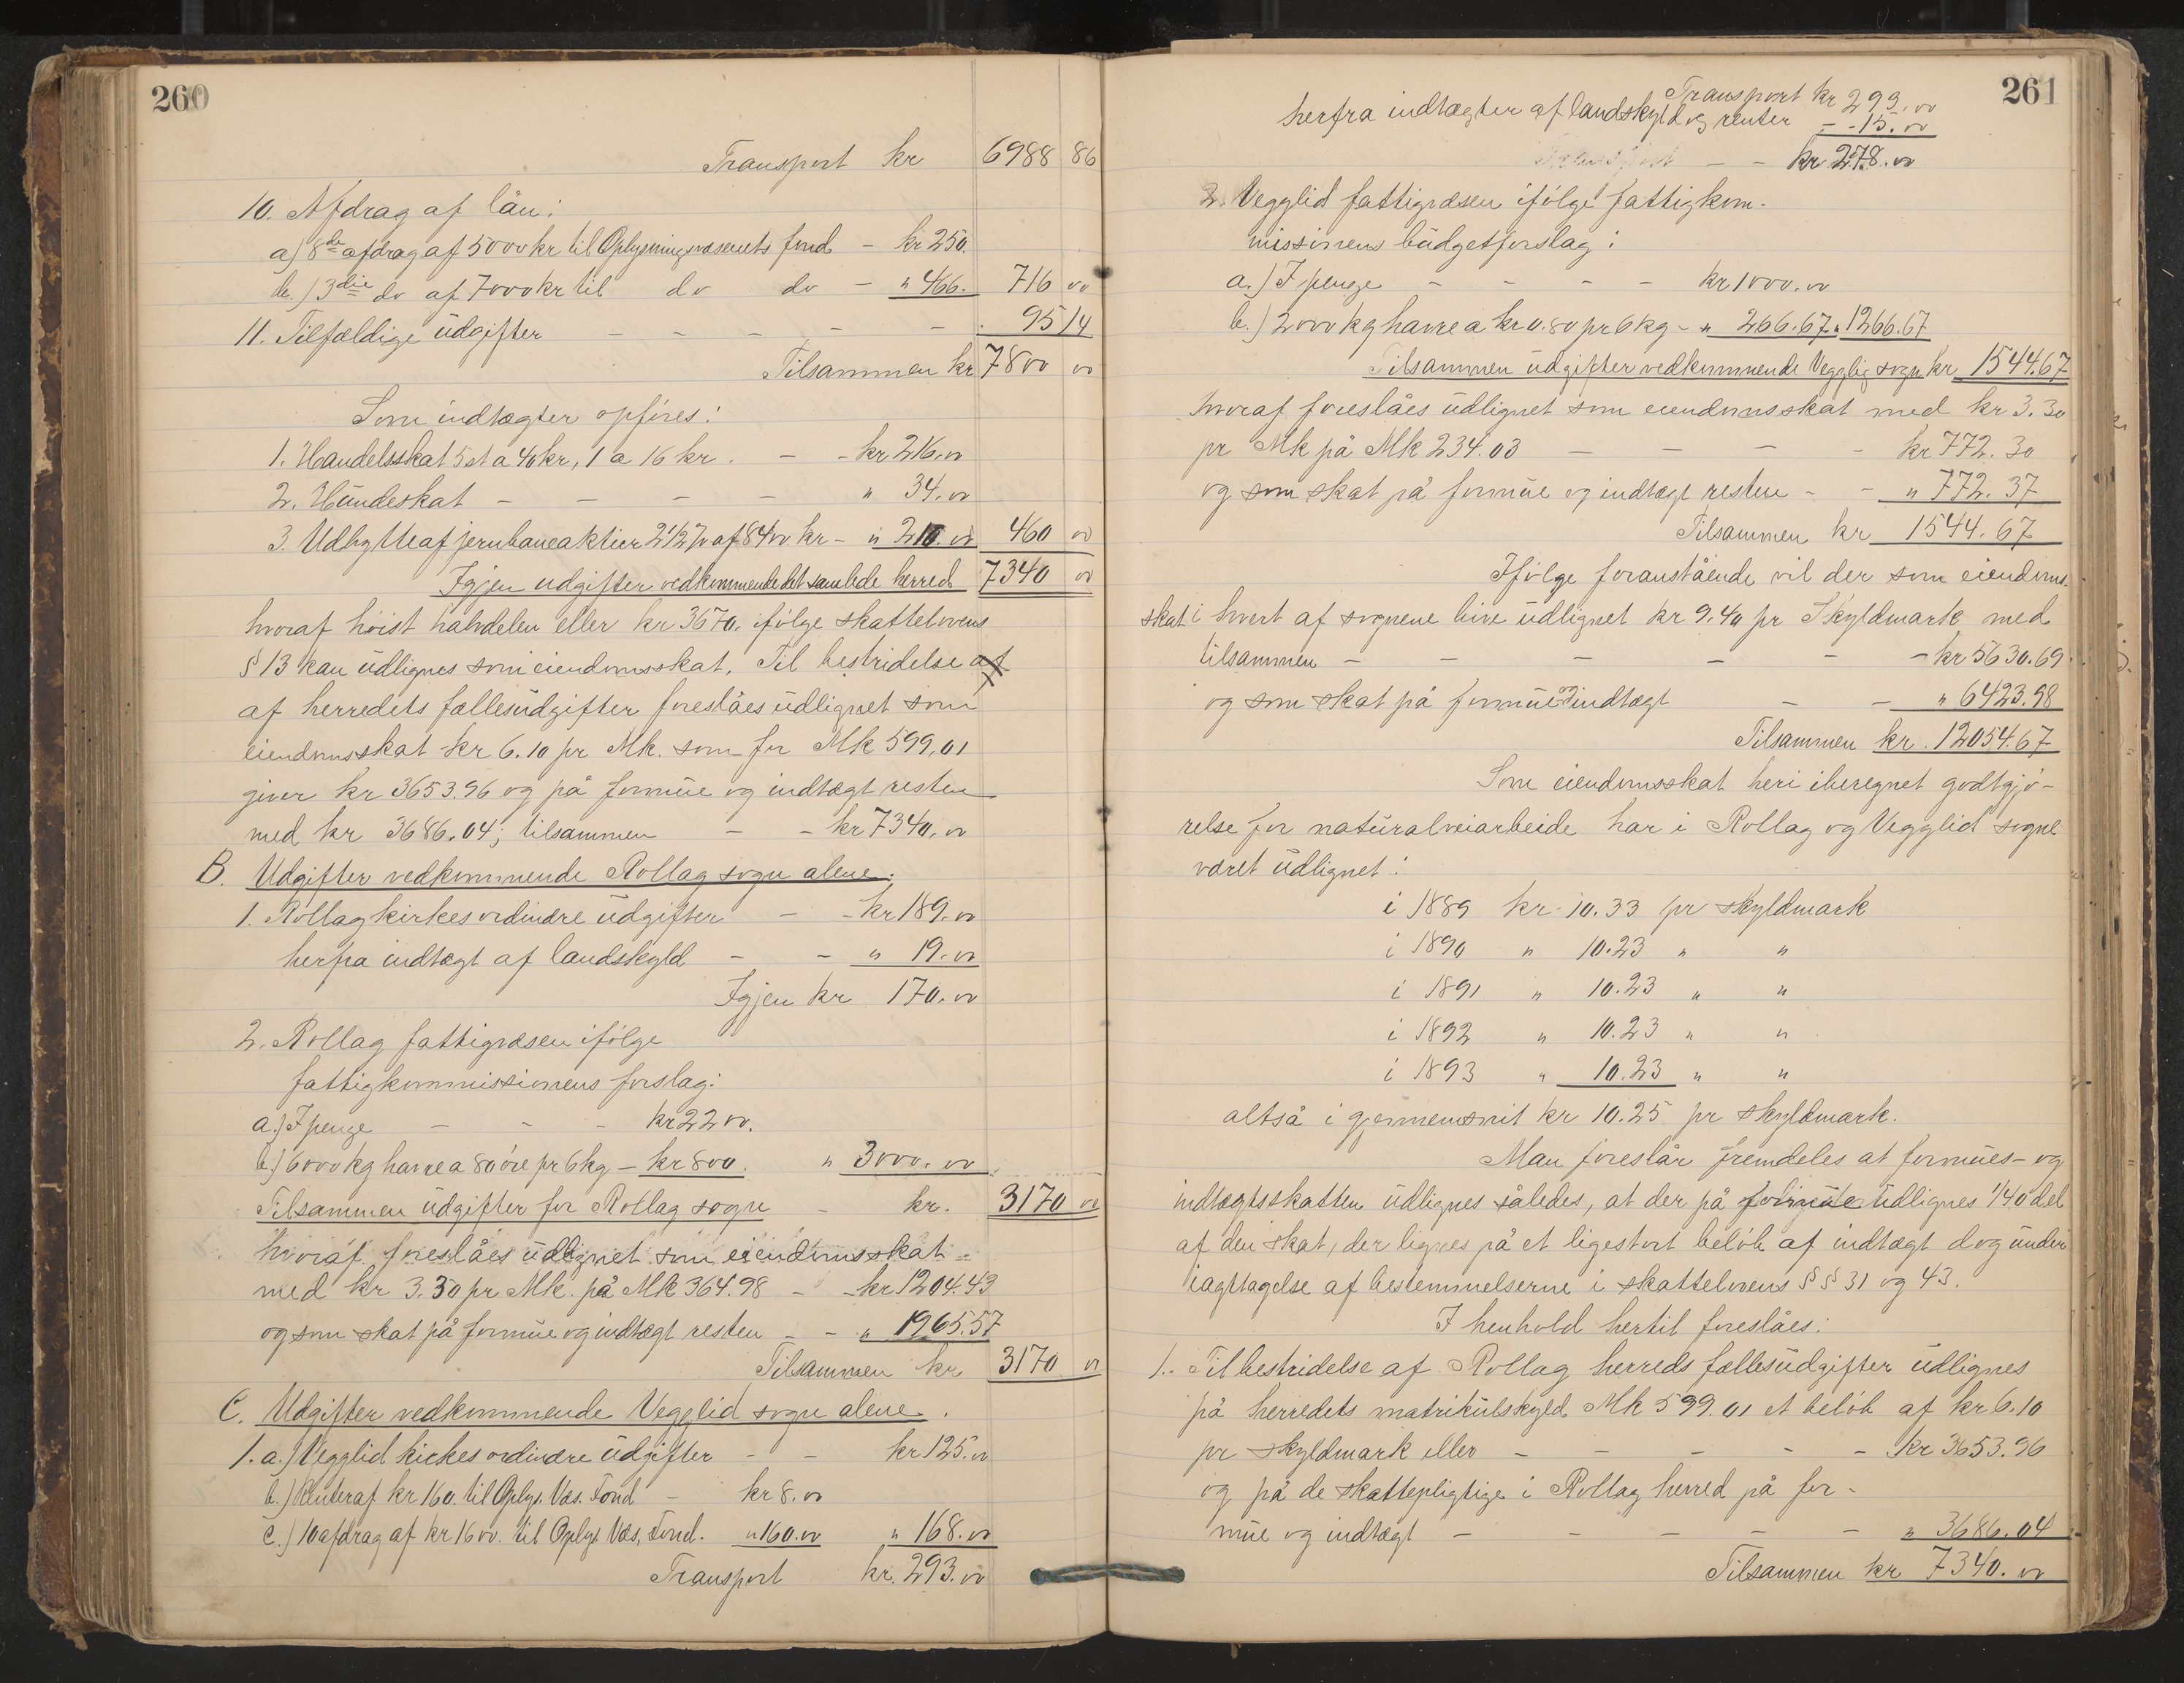 260
Transport kr 6988 86
10. Afdrag af lån:
a) 8de afdrag af 5000 kr til Oplysningsvæsenets fond - kr 250.
b.) 3die do af 7000 kr til do do - " 466. 716 00
11. Tilfældige udgifter - - - - - 95 14
Tilsammen kr 7800 00
Som indtægter opføres:
1. Handelsskat 5 st a 40 kr, 1 a 16 kr. - - kr 216.00
2. Hundeskat - - - - " 34.00
3. Udbytte af jernbaneaktier 2 1/2 % af 8400 kr - " 210.00 460 00
Igjen udgifter vedkommende det samlede herred 7340 00
hvoraf høist halvdelen eller kr 3670. ifølge skattelovens
§ 13 kan udlignes som eiendomsskat. Til bestridelse af
af herredets fællesudgifter foreslåes udlignet som
eiendomsskat kr 6.10 pr Mk. som for Mk 599,01
giver kr 3653.96 og på formue og indtægt resten
med kr 3686.04; tilsammen - - kr 7340.00
B. Udgifter vedkommende Rollag sogn alene.
1. Rollag kirkes ordinære udgifter - - kr 189.00
herfra indtægt af landskyld - - " 19.00
Igjen kr 170.00
2. Rollag fattigvæsen ifølge
fattigkommissionens forslag:
a.) I penge - - - kr 2200.
b.) 6000 kg havre a 80 øre pr 6 kg - kr 800. " 3000.00
Tilsammen udgifter for Rollag sogn - kr. 3170 00
hvoraf foreslåes udlignet som eiendomsskat -
med kr 3.30 pr Mk. på Mk 364.98 - - kr 1204.43
og som skat på formue og indtægt resten - - " 1965.57
Tilsammen kr 3170 00
C. Udgifter vedkommende Vegglid sogn alene.
1. a.) Vegglid kirkes ordinære udgifter - - kr 125.00
b.) Renter af kr 160. til Oplys. Væs. Fond - kr 8.00
c.) 10 afdrag af kr 1600. til Oplys. Væs. Fond. " 160.00 " 168.00
Transport kr. 293.00
261
Transport kr 293.00
herfra indtægter af landskyld og renter - - 15.00
Transport - - kr 278.00
2. Vegglid fattigvæsen ifølge fattigkom-
missionens budgetforslag:
a.) I penge - - - - kr 1000.00
b.) 2000 kg havre a kr 0.80 pr 6 kg - " 266.67 " 1266.67
Tilsammen udgifter vedkommende Vegglig sogn kr 1544.67
hvoraf foreslåes udlignet som eiendomsskat med kr 3.30
pr Mk på Mk 234.03 - - - - kr 772.30
og som skat på formue og indtægt resten - - " 772.37
Tilsammen kr 1544.67
Ifølge foranstående vil der som eiendoms-
skat i hvert af sognene bive udlignet kr 9.40 pr Skyldmark med
tilsammen - - - - - - kr 5630.69
og som skat på formue og indtægt - - " 6423.98
Tilsammen kr. 12054.67
Som eiendomsskat heri iberegnet godtgjø-
relse for naturalveiarbeide har i Rollag og Vegglid sogne
været udlignet:
i 1889 kr. 10.33 pr skyldmark
i 1890 " 10.23 " "
i 1891 " 10.23 " "
i 1892 " 10.23 " "
i 1893 " 10.23 " "
altså i gjennemsnit kr 10.25 pr skyldmark.
Man foreslår fremdeles at formues- og
indtægtsskatten udlignes således, at der på formue udlignes 1/40 del
af den skat, der lignes på et ligestort beløb af indtægt dog under
iagttagelse af bestemmelserne i skattelovens §§ 31 og 43.
I henhold hertil foreslåes:
1. Til bestridelse af Rollag herreds fællesudgifter udlignes
på herredets matrikulskyld Mk 599.01 et beløb af kr 6.10
pr skyldmark eller - - - - - kr 3653.96
og på de skattepligtige i Rollag herred på for-
mue og indtægt - - - - - " 3686.04
Tilsammen kr 7340.00